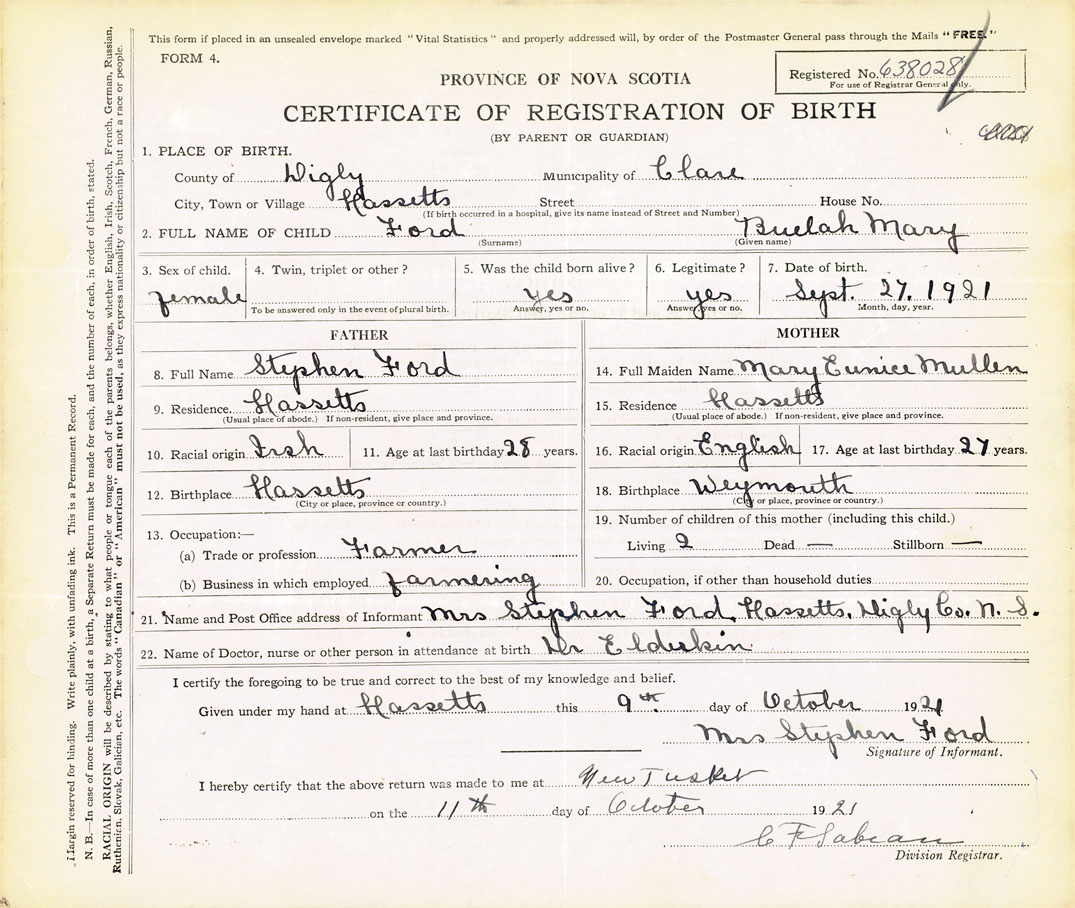 This form if placed in an unsealed envelope marked "Vital Statistics" and properly addressed will, by order of the Postmaster General pass through the Mails "FREE."
FORM 4.
Registered No. 638028
For use of Registrar General only.
PROVINCE OF NOVA SCOTIA
CERTIFICATE OF REGISTRATION OF BIRTH
(BY PARENT OR GUARDIAN)
1. PLACE OF BIRTH.
County of Digby Municipality of Clare
City, Town or Village Hassetts Street House No.
(If birth occurred in a hospital, give its name instead of Street and Number)
2. FULL NAME OF CHILD Ford Buelah Mary
(Surname) (Given name)
3. Sex of child. 4. Twin, triplet or other? 5. Was the child born alive? 6. Legitimate? 7. Date of birth.
female yes yes Sept. 27, 1921
To be answered only in the event of plural birth. Answer, yes or no. Answer, yes or no. Month, day, year.
FATHER
8. Full Name Stephen Ford
9. Residence Hassetts
(Usual place of abode.) If non-resident, give place and province.
10. Racial origin Irsh 11. Age at last birthday 28 years.
12. Birthplace Hassetts
(City or place, province or country.)
13. Occupation:—
(a) Trade or profession Farmer
(b) Business in which employed farmering
MOTHER
14. Full Maiden Name Mary Eunice Mullen
15. Residence Hassetts
(Usual place of abode.) If non-resident, give place and province.
16. Racial origin English 17. Age at last birthday 27 years.
18. Birthplace Weymouth
(City or place, province or country.)
19. Number of children of this mother (including this child.)
Living 2 Dead — Stillborn —
20. Occupation, if other than household duties
21. Name and Post Office address of Informant Mrs Stephen Ford, Hassetts, Digby Co. N. S.
22. Name of Doctor, nurse or other person in attendance at birth Dr Elderkin
I certify the foregoing to be true and correct to the best of my knowledge and belief.
Given under my hand at Hassetts this 9th day of October 1921
Mrs Stephen Ford
Signature of Informant.
I hereby certify that the above return was made to me at New Tusket
on the 11th day of October 1921
C F Sabean
Division Registrar.
Margin reserved for binding. Write plainly, with unfading ink. This is a Permanent Record.
N. B.—In case of more than one child at a birth, a Separate Return must be made for each, and the number of each, in order of birth, stated.
RACIAL ORIGIN will be described by stating to what people or tongue each of the parents belongs, whether English, Irish, Scotch, French, German, Russian,
Ruthenian, Slovak, Galician, etc. The words "Canadian" or "American" must not be used, as they express nationality or citizenship but not a race or people.